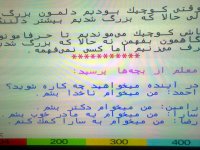 وقتی کوچیک بودیم دلمون بزرگ
ولی حالا که بزرگ شدیم
کاش کوچیک می‌موندیم تا حرفامونو
نگاهمون بفهمن نه حالا که بزرگ شدیم
می‌زنیم اما کسی نمی‌فهمه
**********
معلم از بچه‌ها پرسید:
در آینده میخواهید چه کاره شوید؟
احمد: من میخوام ناخدا بشم
رامین: من میخوام دکتر بشم
من میخوام یه مادر خوب بشم
رضا: من میخوام به سارا کمک کنم
200 300 400